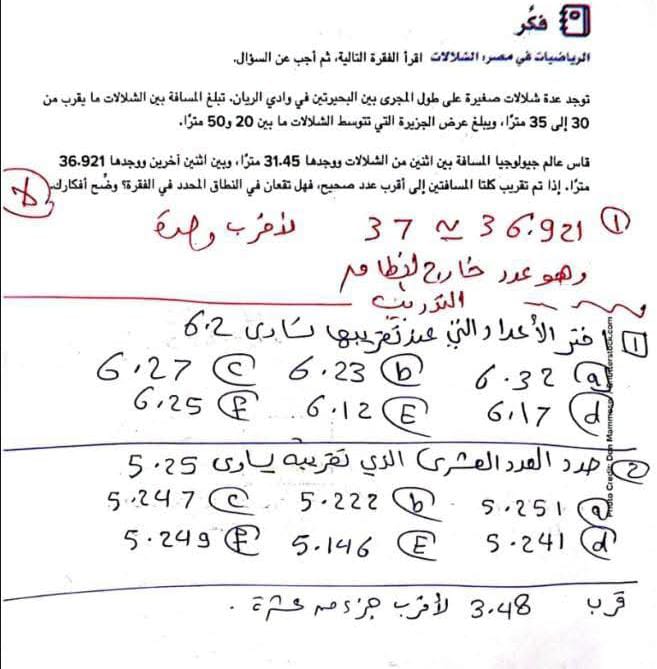 فكّر
الرياضيات في مصر: الشلالات اقرأ الفقرة التالية، ثم أجب عن السؤال.
توجد عدة شلالات صغيرة على طول المجرى بين البحيرتين في وادي الريان. تبلغ المسافة بين الشلالات ما يقرب من
30 إلى 35 مترًا، ويبلغ عرض الجزيرة التي تتوسط الشلالات ما بين 20 و50 مترًا.
قاس عالم جيولوجيا المسافة بين اثنين من الشلالات ووجدها 31.45 مترًا، وبين اثنين آخرين ووجدها 36.921
مترًا. إذا تم تقريب كلتا المسافتين إلى أقرب عدد صحيح، فهل تقعان في النطاق المحدد في الفقرة؟ وضّح أفكارك.
لا
① 36.921 ≈ 37 لأقرب وحدة
وهو عدد خارج النطاق
التدريب
1 اختر الأعداد التي عند تقريبها تساوى 6.2
a 6.32 b 6.23 c 6.27
d 6.17 E 6.12 F 6.25
2 حدد العدد العشرى الذي تقريبه يساوى 5.25
a 5.251 b 5.222 c 5.247
d 5.241 E 5.146 F 5.249
قرب 3.48 لأقرب جزء من عشرة .
Photo Credit: Don Mammoser / Shutterstock.com